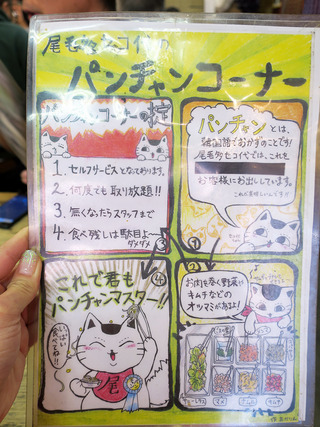 パンチャンコーナー
パンチャンとは、
韓国語でおかずのことです!
尾毛多セコ代では、これを
お客様にお出ししています。
①
②
お肉を巻く野菜や
キムチなどの
オツマミがあるよ!
パンチャンコーナーの掟
1. セルフサービスとなっております。
2. 何度でも取り放題!!
3. 無くなったらスタッフまで
4. 食べ残しは駄目よ〜
ダメダメ
③
④
これで君も
パンチャンマスター!!
尾